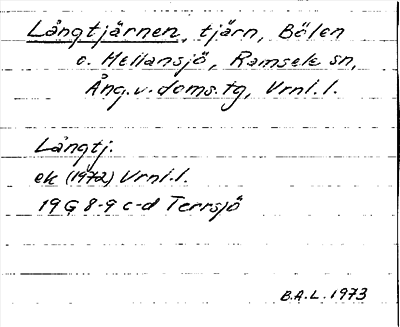 Långtjärnen, tjärn, Bölen
o. Mellansjö, Ramsele sn,
Ång.v.doms.tg, Vrnl.l.
Långtj.
ek (1972) Vrnl.l.
19 G 8-9 c-d Terrsjö
B.A.L. 1973